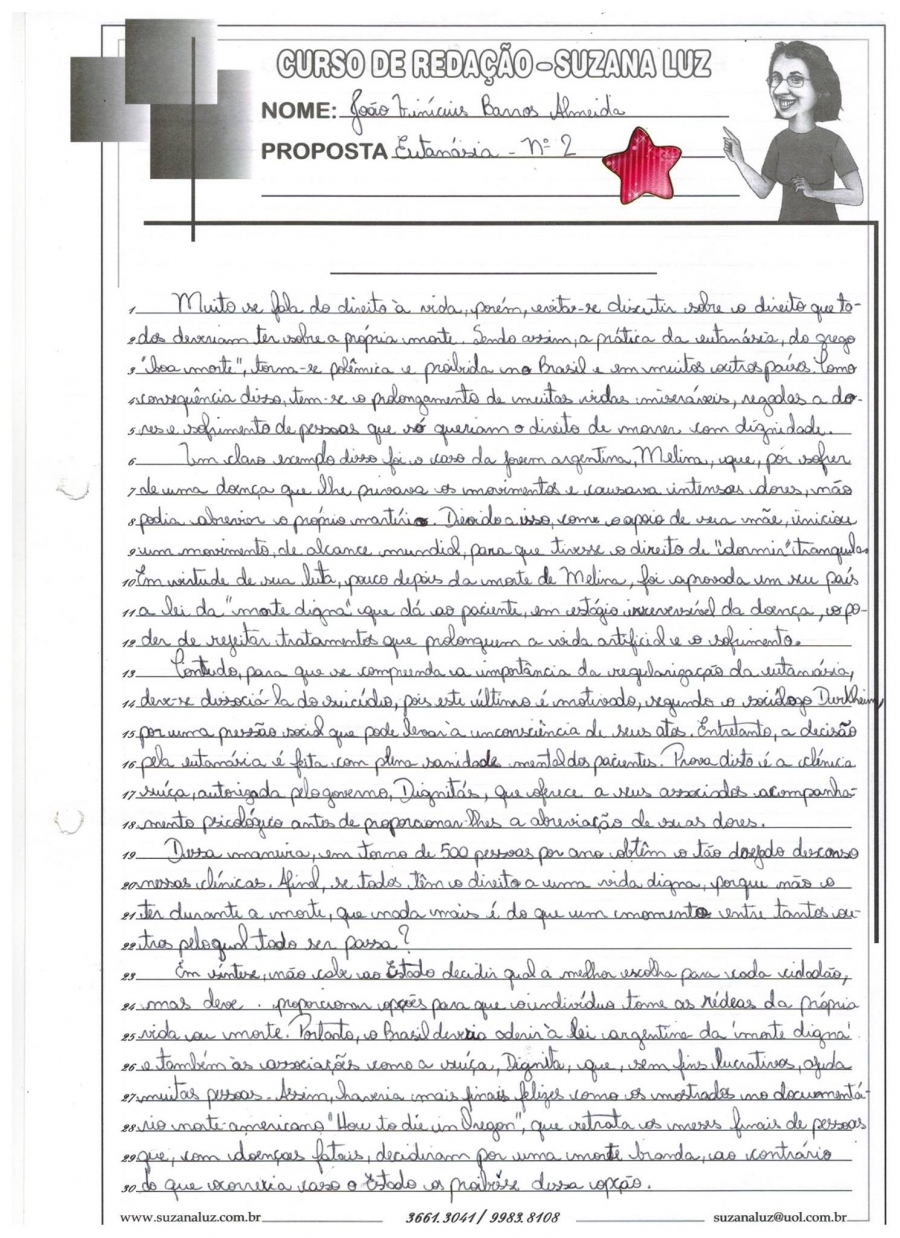 CURSO DE REDAÇÃO - SUZANA LUZ
NOME: João Vinícius Barros Almeida
PROPOSTA Eutanásia - Nº 2
1 Muito se fala do direito à vida, porém, evita-se discutir sobre o direito que to-
2 dos deveriam ter sobre a própria morte. Sendo assim, a prática da eutanásia, do grego
3 "boa morte", torna-se polêmica e proibida no Brasil e em muitos outros países. Como
4 consequência disso, tem-se o prolongamento de muitas vidas miseráveis, regadas a do-
5 res e sofrimento de pessoas que só queriam o direito de morrer com dignidade.
6 Um claro exemplo disso foi o caso da jovem argentina, Melina, que, por sofrer
7 de uma doença que lhe privava os movimentos e causava intensas dores, não
8 podia abreviar o próprio martírio. Devido a isso, com o apoio de sua mãe, iniciou
9 um movimento, de alcance mundial, para que tivesse o direito de "dormir" tranquila.
10 Em virtude de sua luta, pouco depois da morte de Melina, foi aprovada em seu país
11 a lei da "morte digna" que dá ao paciente, em estágio irreversível da doença, o po-
12 der de rejeitar tratamentos que prolonguem a vida artificial e o sofrimento.
13 Contudo, para que se compreenda a importância da regularização da eutanásia,
14 deve-se dissociá-la do suicídio, pois este último é motivado, segundo o sociólogo Durkheim,
15 por uma pressão social que pode levar à inconsciência de seus atos. Entretanto, a decisão
16 pela eutanásia é feita com plena sanidade mental dos pacientes. Prova disto é a clínica
17 suíça, autorizada pelo governo, Dignitás, que oferece a seus associados acompanha-
18 mento psicológico antes de proporcionar-lhes a abreviação de suas dores.
19 Dessa maneira, em torno de 500 pessoas por ano obtêm o tão desejado descanso
20 nessas clínicas. Afinal, se todos têm o direito a uma vida digna, porque não o
21 ter durante a morte, que nada mais é do que um momento entre tantos ou-
22 tros pelo qual todo ser passa?
23 Em síntese, não cabe ao Estado decidir qual a melhor escolha para cada cidadão,
24 mas deve proporcionar opções para que o indivíduo tome as rédeas da própria
25 vida ou morte. Portanto, o Brasil deveria aderir à lei argentina da "morte digna"
26 e também às associações como a suíça, Dignita, que, sem fins lucrativos, ajuda
27 muitas pessoas. Assim, haveria mais finais felizes como os mostrados no documentá-
28 rio norte-americano "How to die in Oregon", que retrata os meses finais de pessoas
29 que, com doenças fatais, decidiram por uma morte branda, ao contrário
30 do que ocorreria caso o Estado os proibisse dessa opção.
www.suzanaluz.com.br 3661.3041 / 9983.8108 suzanaluz@uol.com.br